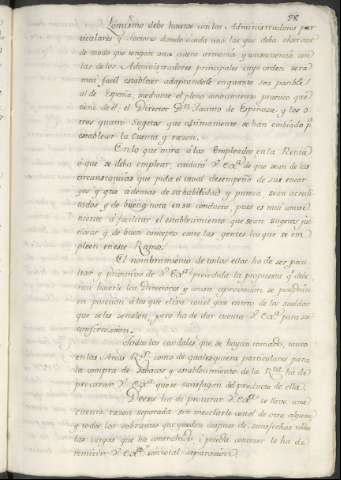 Lo mismo debe hacerse con los Administradores par
ticulares y Tercenistas dando a cada uno las que deba observar
de modo que tengan una entera armonia y concordancia con
las de los Administradores principales cuyo orden sera
mui facil establecer adaptandole en quanto sea posible
al de España, mediante el pleno conocimiento practico que
tiene de el, el Director Dn. Jacinto de Espinosa y los o-
tros quatro Sugetos que ultimamente se han embiado pa.
establecer la Cuenta y razon.
En lo que mira a los Empleados en la Renta
o que se deba emplear, cuidara V. Exa. de que sean de las
circunstancias que pida el usual desempeño de sus encar
gos y que ademas de su habilidad y pureza sean acredi
tados, y de buena nota en su conducta, pues es mui conve
niente a facilitar el establecimiento que sean sugetos
y de buen concepto entre las gentes los que se em
pleen en este Ramo.
El nombramiento de todos ellos ha de ser pecu
liar y privativo de V. Exa. precedida la propuesta que debe
ran hacerle los Directores y con su aprovacion se pondran
en posesion a los que elixa con el goze entero de los sueldos
que se les señalen, pero ha de dar cuenta V. Exa. para su
confirmacion.
Todos los caudales que se hayan tomado, tanto
en las Arcas Rs. como de qualesquiera particulares para
la compra de Tabacos y establecimiento de la Rta. ha de
procurar V. Exa. que se satisfagan del producto de ella.
Deve ha de procurar V. Exa. se lleve una
cuenta y razon separada sin mezclarle con el de otro alguno
y todos los sobrantes que queden despues de satisfechas todas
las cargas que ha contrahido, i pueda contraer lo ha de
remitir V. Exa. con total separacion.